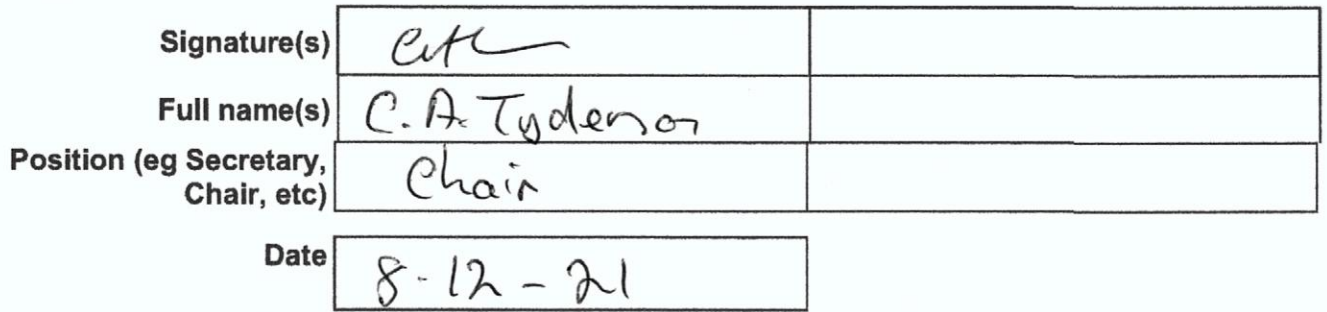 Signature(s)
Full name(s) C. A. Tyderson
Position (eg Secretary,
Chair, etc) Chair
Date 8-12-21